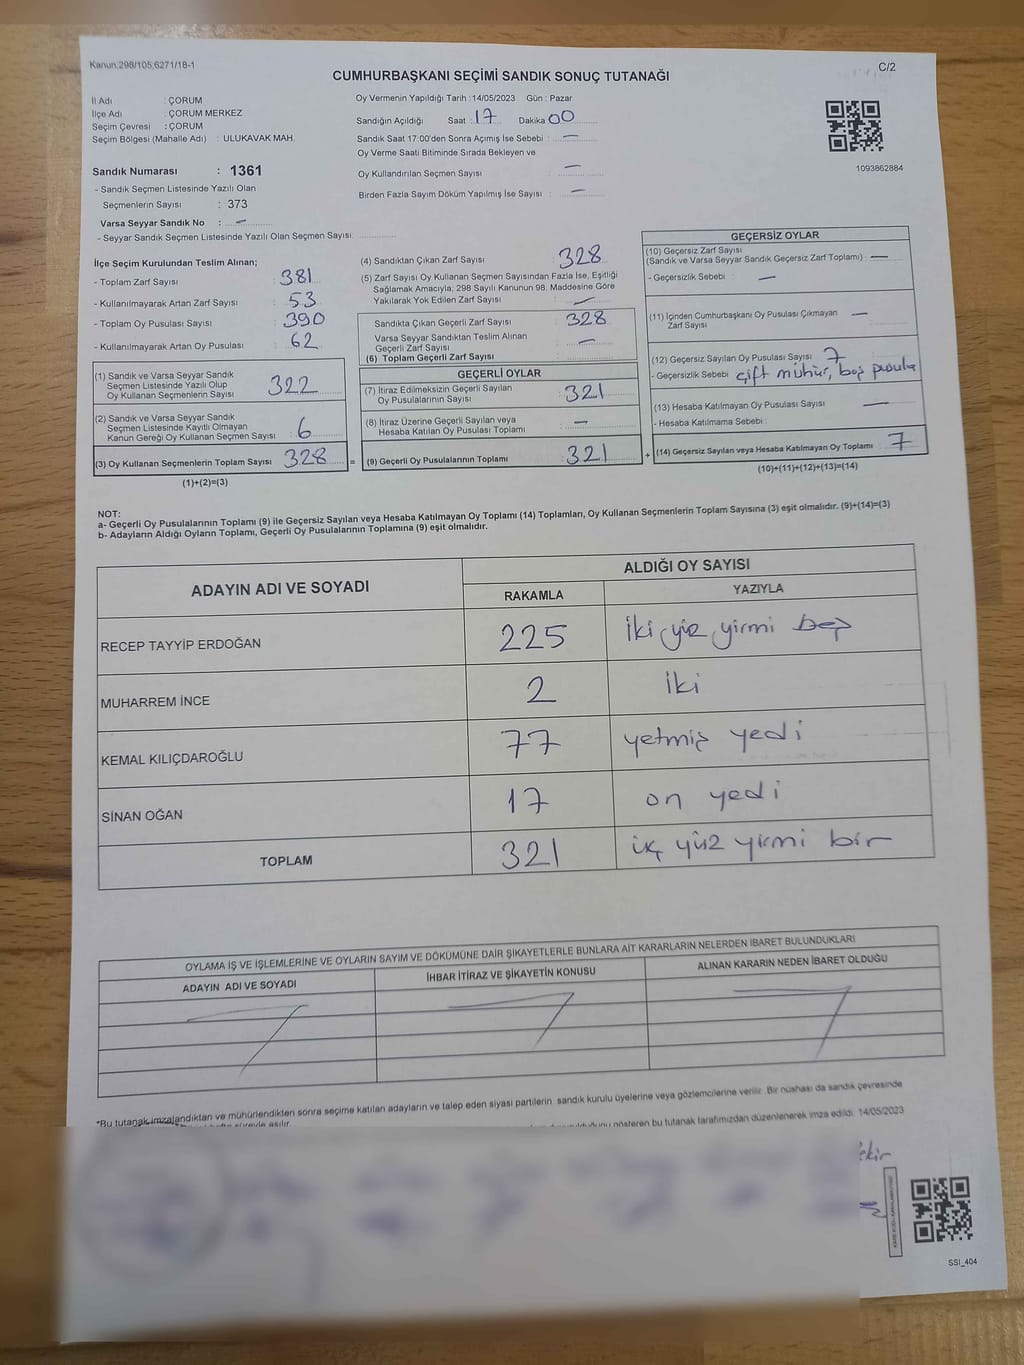 Kanun:298/105,6271/18-1
C/2
CUMHURBAŞKANI SEÇİMİ SANDIK SONUÇ TUTANAĞI
İl Adı : ÇORUM
İlçe Adı : ÇORUM MERKEZ
Seçim Çevresi : ÇORUM
Seçim Bölgesi (Mahalle Adı) : ULUKAVAK MAH.
Sandık Numarası : 1361
- Sandık Seçmen Listesinde Yazılı Olan
Seçmenlerin Sayısı : 373
Varsa Seyyar Sandık No : -
- Seyyar Sandık Seçmen Listesinde Yazılı Olan Seçmen Sayısı:
Oy Vermenin Yapıldığı Tarih :14/05/2023 Gün : Pazar
Sandığın Açıldığı Saat : 17 Dakika 00
Sandık Saat 17:00'den Sonra Açımış İse Sebebi : -
Oy Verme Saati Bitiminde Sırada Bekleyen ve
Oy Kullandırılan Seçmen Sayısı : -
Birden Fazla Sayım Döküm Yapılmış İse Sayısı : -
1093862884
İlçe Seçim Kurulundan Teslim Alınan;
- Toplam Zarf Sayısı : 381
- Kullanılmayarak Artan Zarf Sayısı : 53
- Toplam Oy Pusulası Sayısı : 390
- Kullanılmayarak Artan Oy Pusulası : 62
(1) Sandık ve Varsa Seyyar Sandık
Seçmen Listesinde Yazılı Olup
Oy Kullanan Seçmenlerin Sayısı : 322
(2) Sandık ve Varsa Seyyar Sandık
Seçmen Listesinde Kayıtlı Olmayan
Kanun Gereği Oy Kullanan Seçmen Sayısı : 6
(3) Oy Kullanan Seçmenlerin Toplam Sayısı : 328
(1)+(2)=(3)
(4) Sandıktan Çıkan Zarf Sayısı : 328
(5) Zarf Sayısı Oy Kullanan Seçmen Sayısından Fazla İse, Eşitliği
Sağlamak Amacıyla, 298 Sayılı Kanunun 98. Maddesine Göre
Yakılarak Yok Edilen Zarf Sayısı : -
Sandıkta Çıkan Geçerli Zarf Sayısı : 328
Varsa Seyyar Sandıktan Teslim Alınan
Geçerli Zarf Sayısı : -
(6) Toplam Geçerli Zarf Sayısı :
GEÇERLİ OYLAR
(7) İtiraz Edilmeksizin Geçerli Sayılan
Oy Pusulalarının Sayısı : 321
(8) İtiraz Üzerine Geçerli Sayılan veya
Hesaba Katılan Oy Pusulası Toplamı : -
= (9) Geçerli Oy Pusulalarının Toplamı : 321
GEÇERSİZ OYLAR
(10) Geçersiz Zarf Sayısı
(Sandık ve Varsa Seyyar Sandık Geçersiz Zarf Toplamı) : -
- Geçersizlik Sebebi : -
(11) İçinden Cumhurbaşkanı Oy Pusulası Çıkmayan
Zarf Sayısı : -
(12) Geçersiz Sayılan Oy Pusulası Sayısı : 7
- Geçersizlik Sebebi : çift mühür, boş pusula
(13) Hesaba Katılmayan Oy Pusulası Sayısı : -
- Hesaba Katılmama Sebebi :
+ (14) Geçersiz Sayılan veya Hesaba Katılmayan Oy Toplamı : 7
(10)+(11)+(12)+(13)=(14)
NOT:
a- Geçerli Oy Pusulalarının Toplamı (9) ile Geçersiz Sayılan veya Hesaba Katılmayan Oy Toplamı (14) Toplamları, Oy Kullanan Seçmenlerin Toplam Sayısına (3) eşit olmalıdır. (9)+(14)=(3)
b- Adayların Aldığı Oyların Toplamı, Geçerli Oy Pusulalarının Toplamına (9) eşit olmalıdır.
ADAYIN ADI VE SOYADI
ALDIĞI OY SAYISI
RAKAMLA YAZIYLA
RECEP TAYYİP ERDOĞAN 225 iki yüz yirmi beş
MUHARREM İNCE 2 iki
KEMAL KILIÇDAROĞLU 77 yetmiş yedi
SİNAN OĞAN 17 on yedi
TOPLAM 321 üç yüz yirmi bir
OYLAMA İŞ VE İŞLEMLERİNE VE OYLARIN SAYIM VE DÖKÜMÜNE DAİR ŞİKAYETLERLE BUNLARA AİT KARARLARIN NELERDEN İBARET BULUNDUKLARI
ADAYIN ADI VE SOYADI İHBAR İTİRAZ VE ŞİKAYETİN KONUSU ALINAN KARARIN NEDEN İBARET OLDUĞU
*Bu tutanak imzalandıktan ve mühürlendikten sonra seçime katılan adayların ve talep eden siyasi partilerin sandık kurulu üyelerine veya gözlemcilerine verilir. Bir nüshası da sandık çevresinde
gösteren bu tutanak tarafımızdan düzenlenerek imza edildi. 14/05/2023
SSI_404